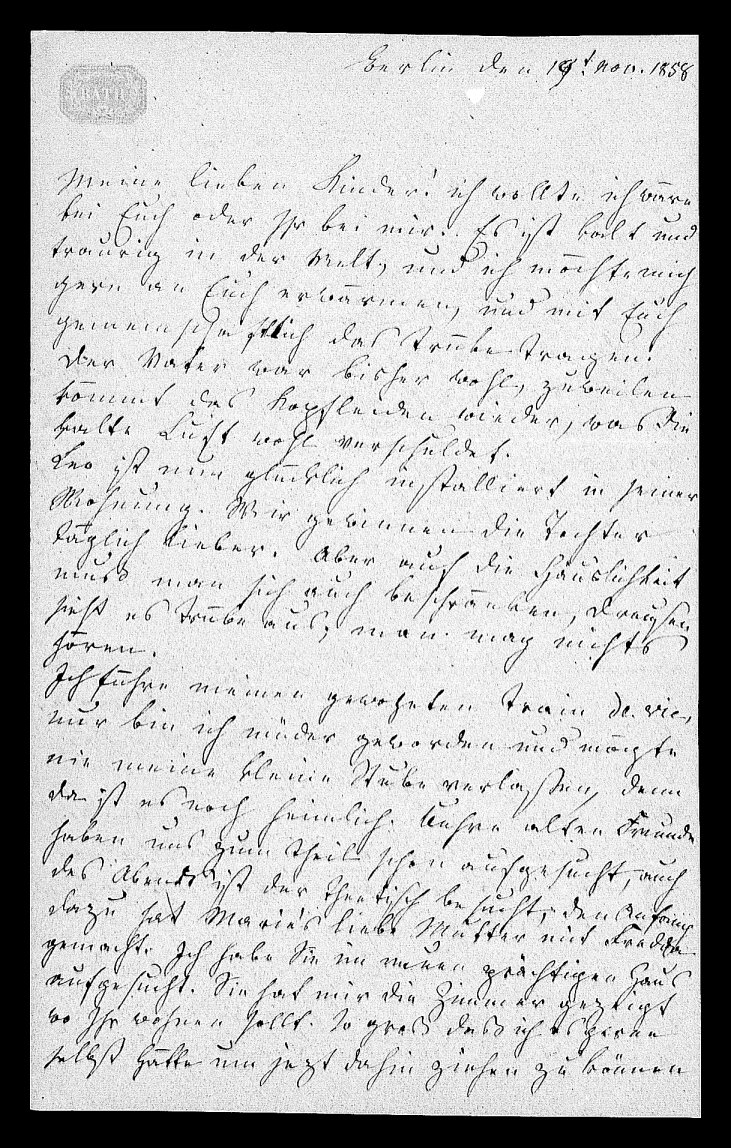 BATH
Berlin den 19t. nov. 1858
Meine lieben Kinder! ich wollte ich wäre
bei Euch oder Ihr bei mir. Es ist kalt und
traurig in der Welt, und ich möchte mich
gern an Euch erwärmen, und mit Euch
gemeinschaftlich das Trübe tragen.
Der Vater war bisher wohl, zuweilen
kömmt das Kopfleiden wieder, was die
kalte Luft wohl verschuldet.
Leo ist nun glücklich installiert in seiner
Wohnung. Wir gewinnen die Tochter
täglich lieber. Aber auf die Häuslichkeit
muss man sich auch beschränken, draussen
sieht es trübe aus, man mag nichts
hören.
Ich führe meinen gewohnten train de vie,
nur bin ich müder geworden und mögte
nie meine kleine Stube verlassen, denn
da ist es noch heimlich. Unsre alten Freunde
haben uns zum Theil schon aufgesucht, auch
des Abends ist der Theetisch besucht, den Anfang
dazu hat Marie's liebe Mutter mit
gemacht. Ich habe Sie im neuen prächtigen Haus
aufgesucht. Sie hat mir die Zimmer gezeigt
wo Ihr wohnen sollt. So gross dass ich es gerne
selbst hätte um jezt dahin ziehen zu können